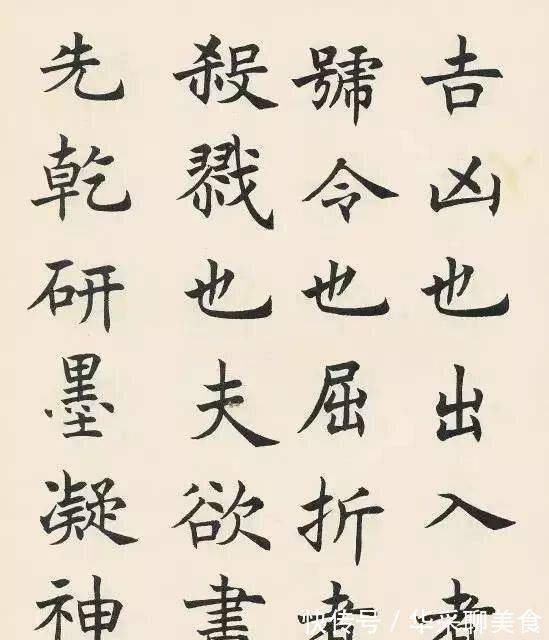 吉凶也出入者
號令也屈折者
殺戮也夫欲書
先乾研墨凝神
快传号 / 华采聊美食